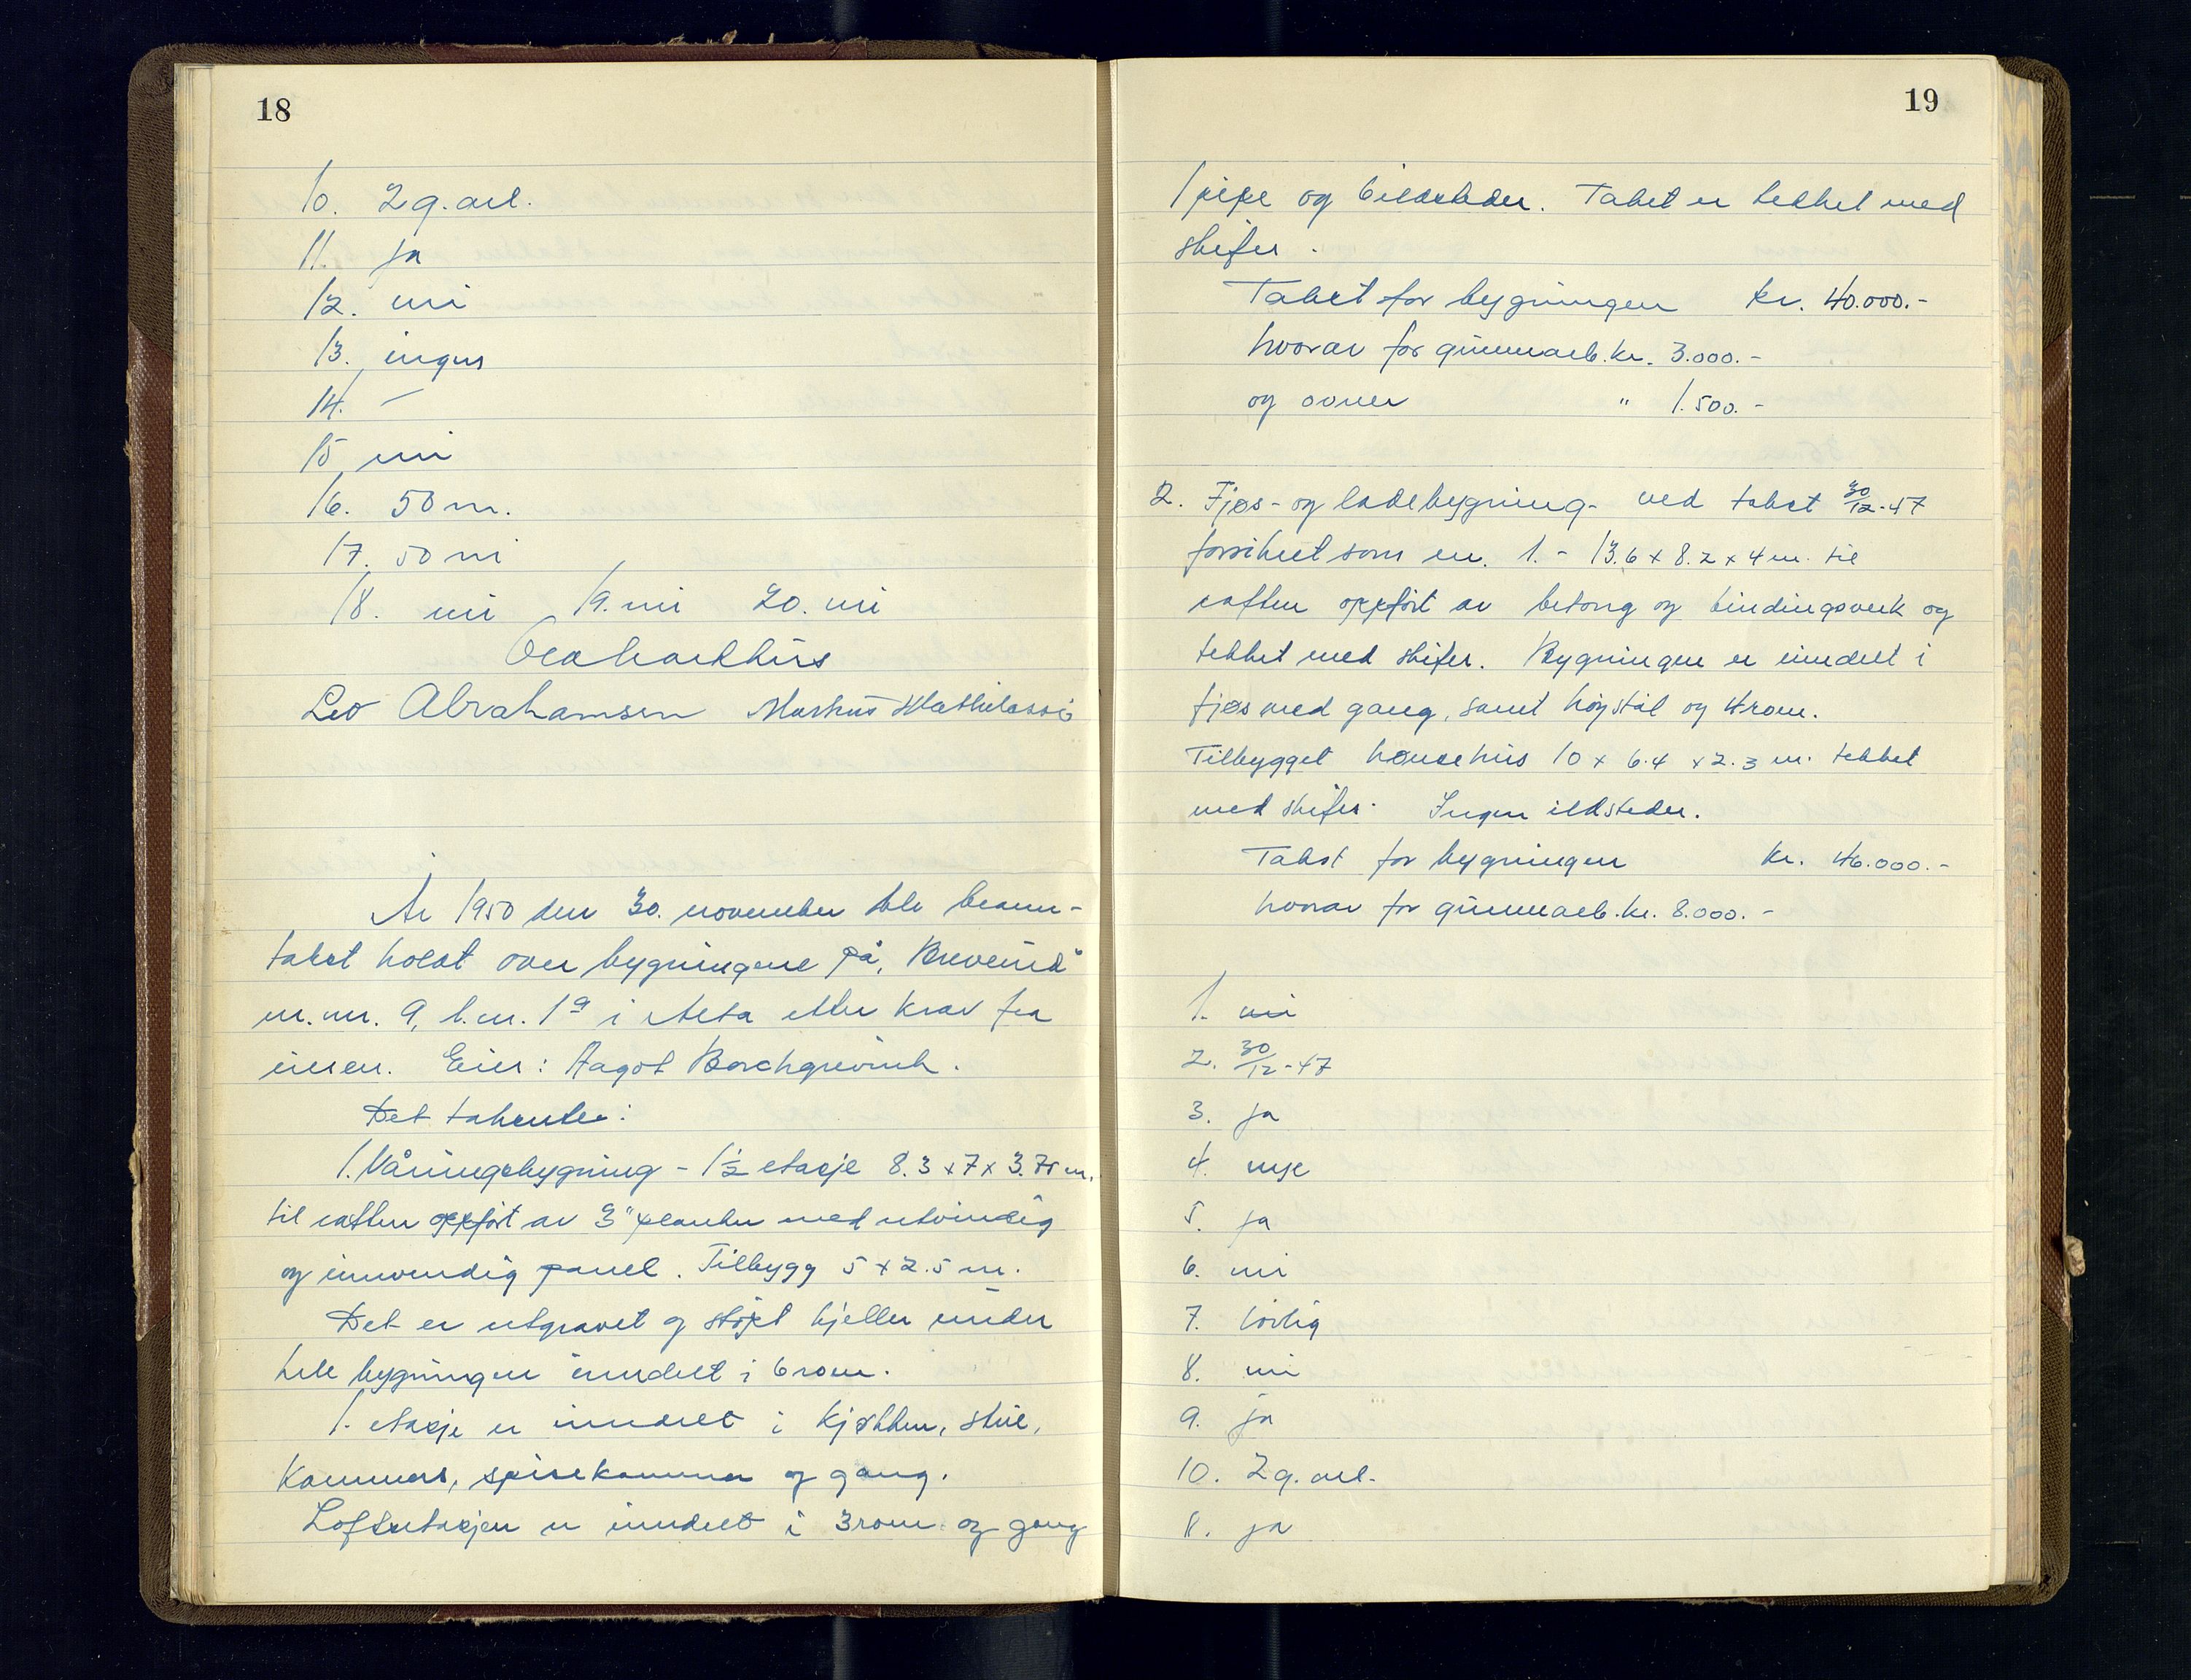 18
10. 2 g. årl.
11. ja
12. nei
13. ingen
14. –
15 nei
16. 50 m.
17. 50 m
18. nei 19. nei 20. nei
Leo Abrahamsen Markus Mathilassi
År 1950 den 30. november ble brann-
takst holdt over bygningene på "
m.nr. 9, b.nr. 1ª i Alta etter krav fra
eieren. Eier: Aagot Borchgrevink.
Det takserte:
1. Våningsbygning - 1½ etasje 8.3 x 7 x 3.75 m.
til raften oppført av 3" planker med utvendig
og innvendig panel. Tilbygg 5 x 2.5 m.
Det er utgravet og støpt kjeller under
hele bygningen inndelt i 6 rom.
1. etasje er inndelt i kjøkken, stue,
kammers, spisekammer og gang.
Loftsetasjen er inndelt i 3 rom og gang
19
1 pipe og ildsteder. Taket er tekket med
skifer.
Takst for bygningen kr. 40.000.-
hvorav for grunnarb. kr. 3.000.-
og ovner " 1.500.-
2. Fjøs- og ladebygning- ved takst 30/12-47
forsikret som nr. 1. - 13.6 x 8.2 x 4 m. til
raften oppført av betong og bindingsverk og
tekket med skifer. Bygningen er inndelt i
fjøs med gang, samt høystål og 4 rom.
Tilbygget hønsehus 10 x 6.4 x 2.3 m. tekket
med skifer. Ingen ildsteder.
Takst for bygningen kr. 46.000.-
hvorav for grunnarb. kr. 8.000.-
1. nei
2. 30/12-47
3. ja
4. nye
5. ja
6. nei
7. lovlig
8. nei
9. ja
10. 2 g. årl.
11. ja